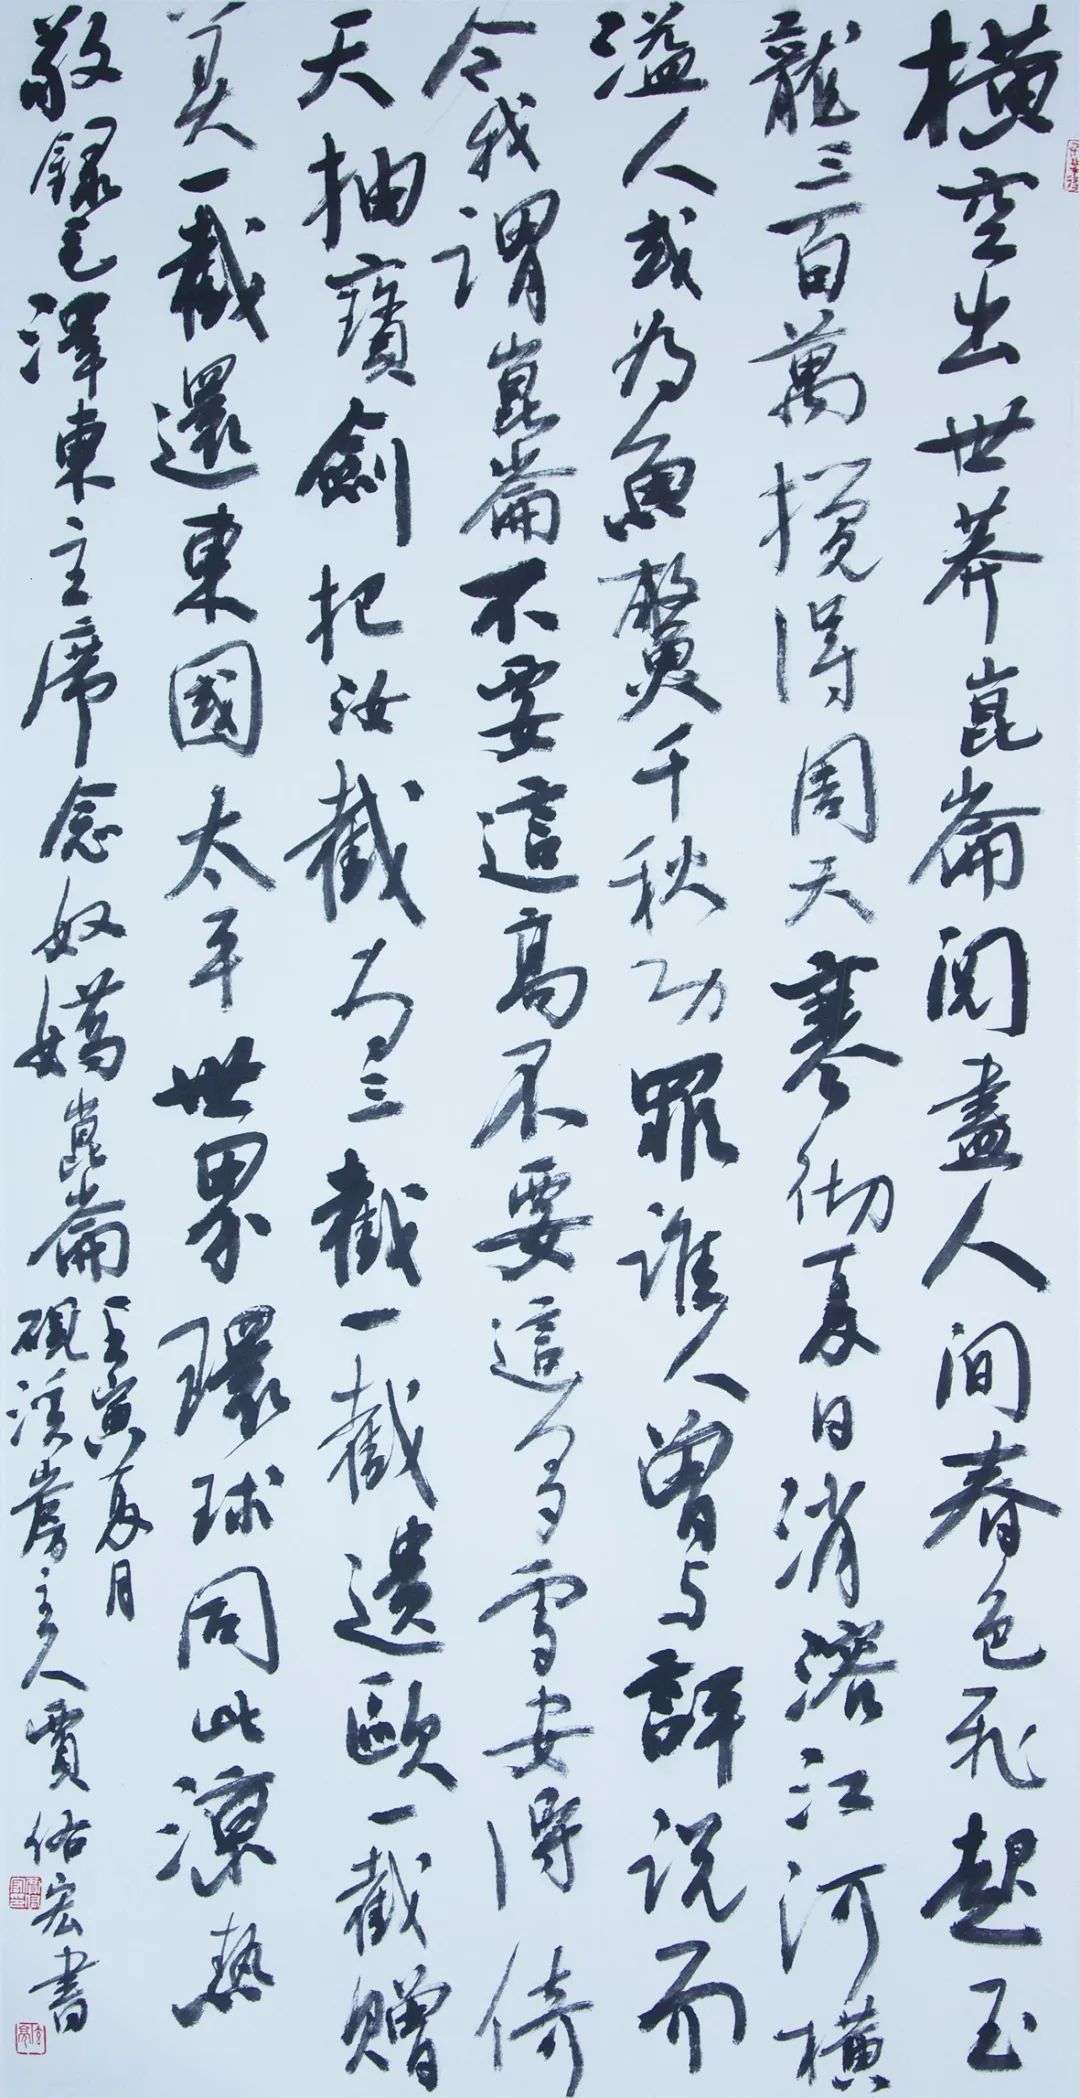 橫空出世莽崑崙閱盡人間春色飛起玉
龍三百萬搅得周天寒彻夏日消溶江河橫
溢人或为魚鱉千秋功罪誰人曾与評説而
今我謂崑崙不要這高不要這多雪安得倚
天抽寶劍把汝截为三截一截遺歐一截贈
美一截還東國太平世界環球同此涼熱
敬錄毛澤東主席念奴嬌崑崙壬寅夏月
硯溪山房主人賈佑宏書